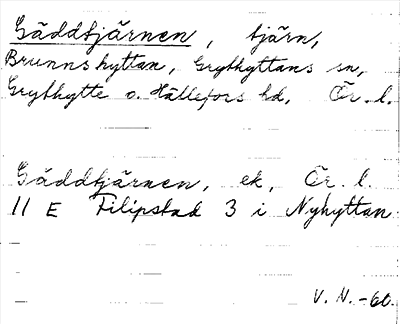 Gäddtjärnen, tjärn,
Brunnshyttan, Grythyttans sn,
Grythytte o. Hällefors hd, Ör. l.
Gäddtjärnen, ek, Ör. l.
11 E Filipstad 3 i Nyhyttan
V. N. -60.